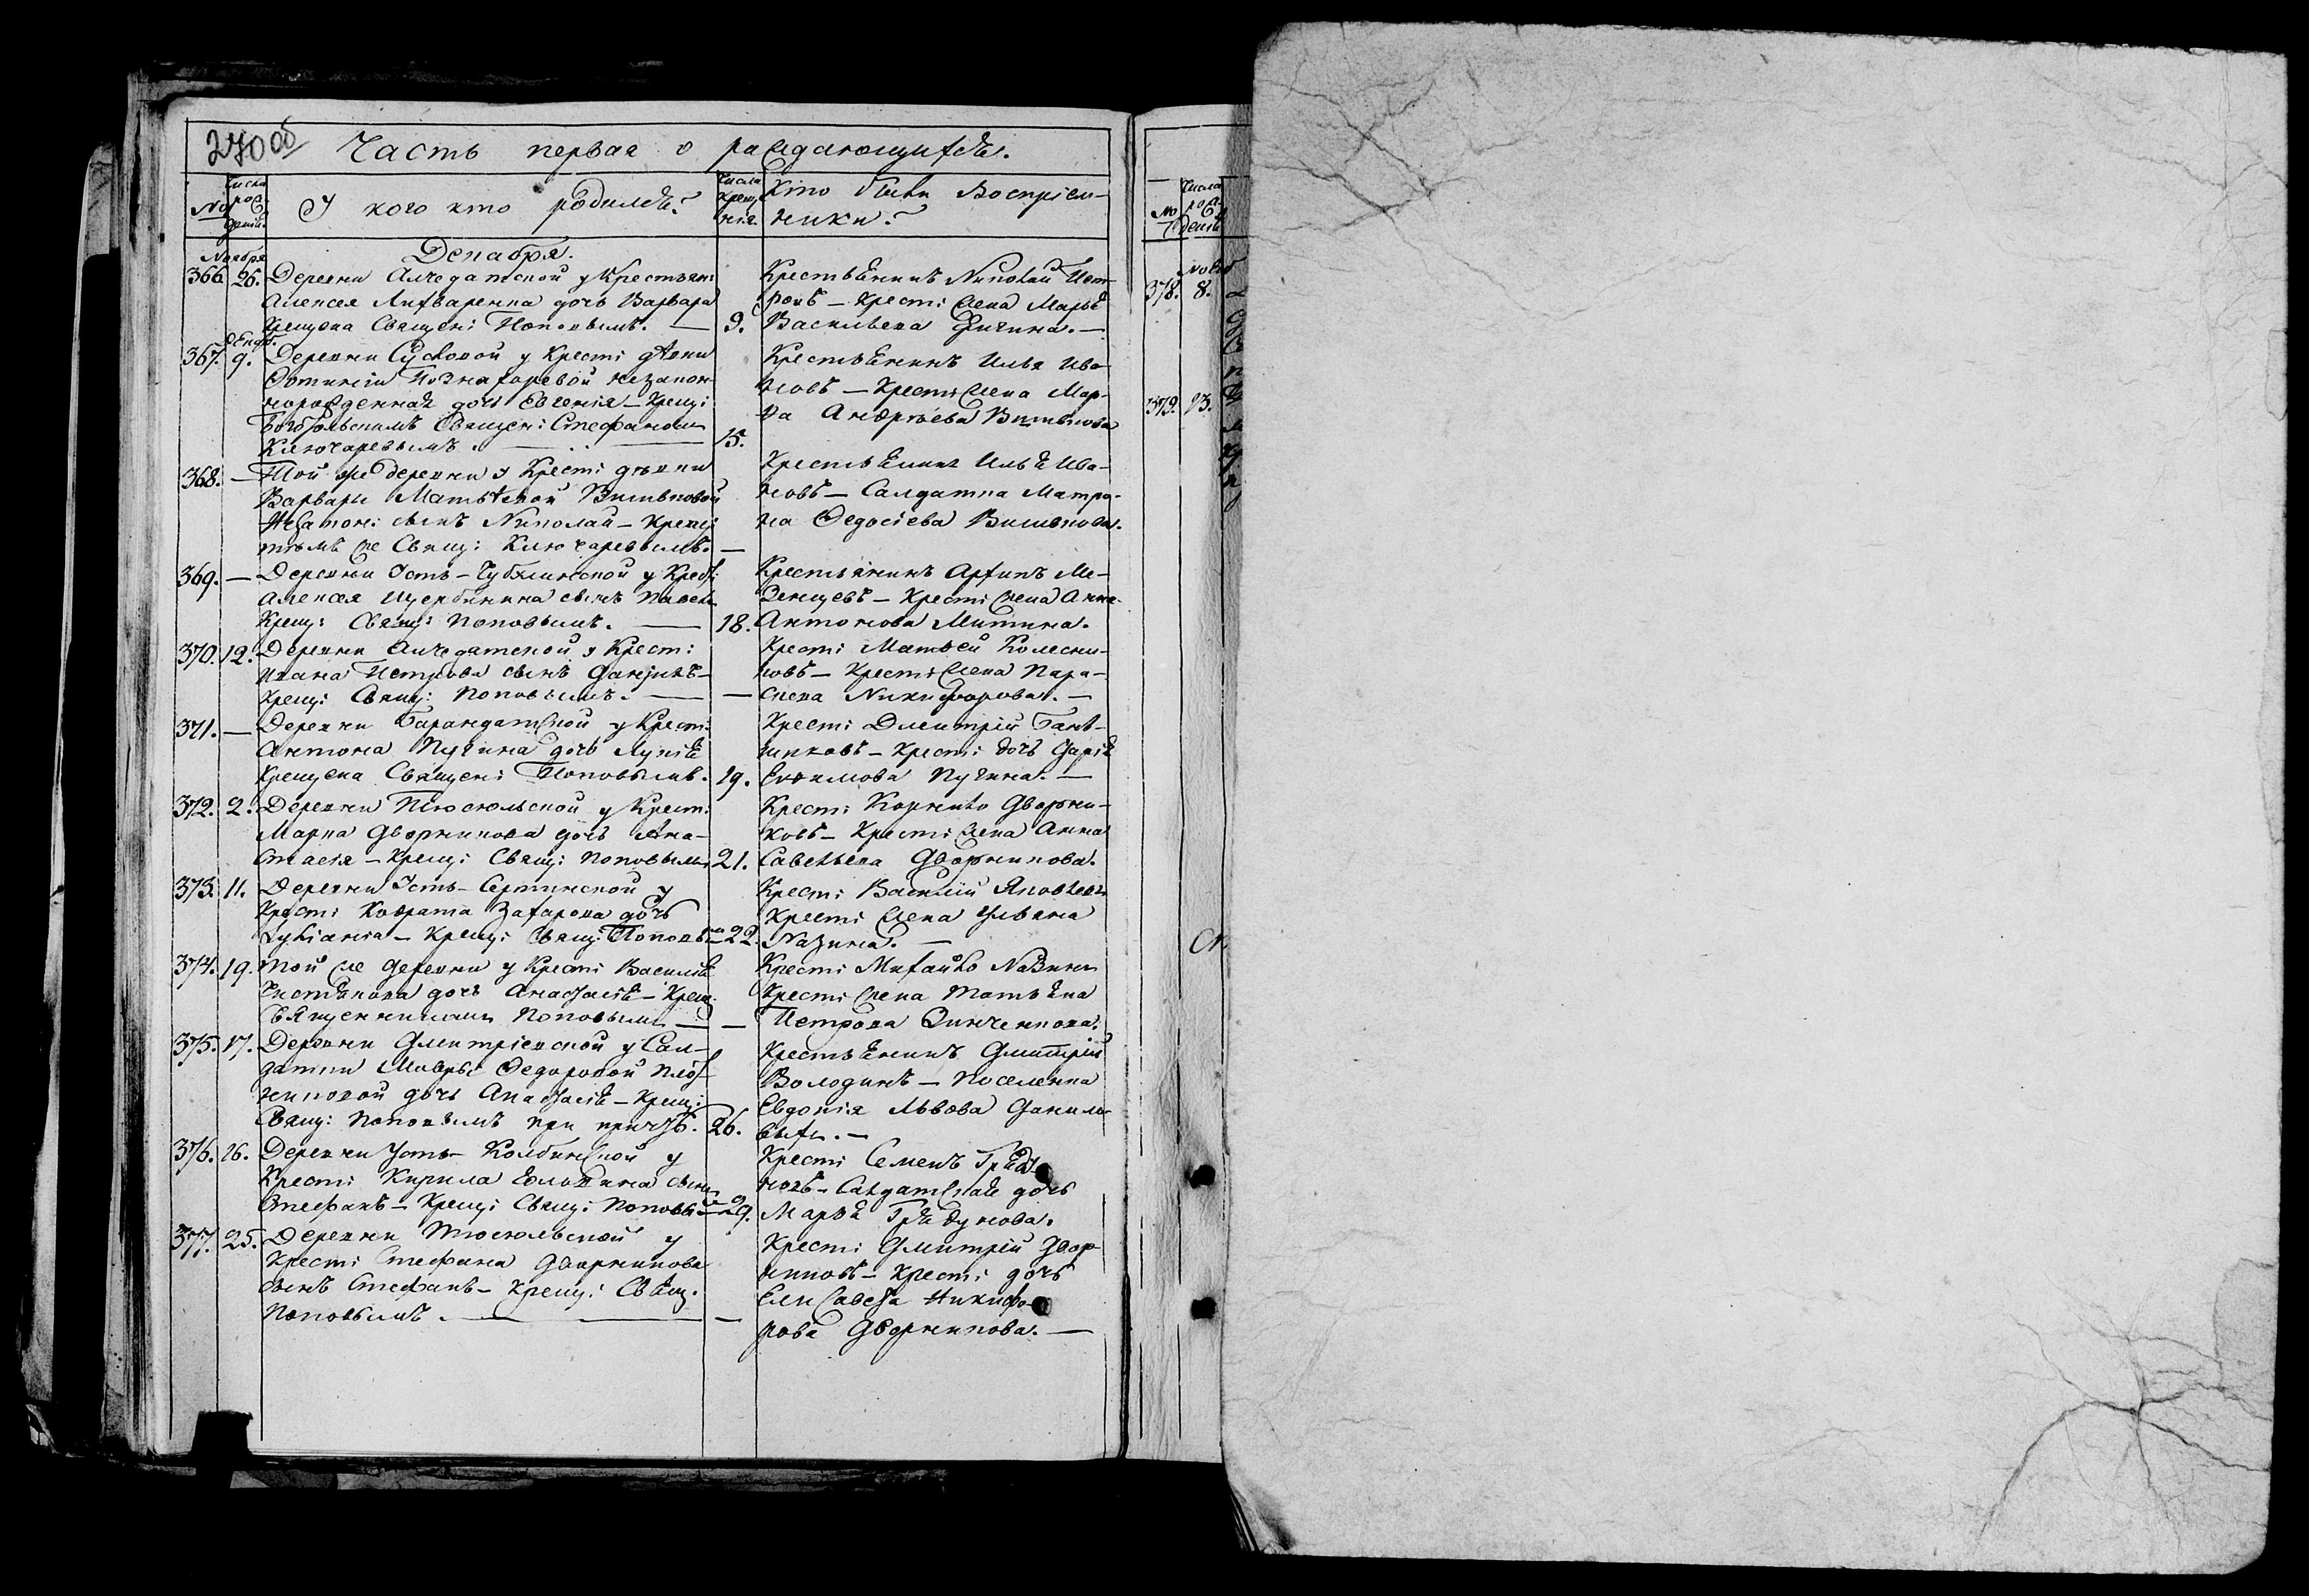 270об
Часть первая о раждающихся.
№
Числа рождения.
У кого кто родился?
Числа крещения.
Кто были Восприем-
ники?
Декабря.
Ноября
366. 26. Деревни Алчедатской у Крестьян:
Алексея Литваренка дочь Варвара
Крещена Священ: Поповымъ. — 9.
Крестьянинъ Николай Пет-
ровъ — Крест: жена Марья
Васильева Фигина. —
Декаб.
367. 9. Деревни Сусловой у Крест: дѣвки
Фотиніи Познахаревой незакон-
норожденная дочь Евгенія — Крещ:
Боготольскимъ Священ: Стефаномъ
Ключаревымъ. — 15.
Крестьянинъ Илья Ива-
новъ — Крест: жена Мар-
ѳа Андреева
368. — Той же деревни у Крест: дѣвки
Варвары
Незакон: сынъ Николай — Крещ:
тѣмъ же Свящ: Ключаревымъ. —
Крестьянинъ Илья Ива-
новъ — Салдатка Матро-
на Федосіева
369. — Деревни Усть-Чубалинской у Крест:
Алексея Щербинина сынъ Павелъ
Крещ: Свящ: Поповымъ. — 18.
Крестьянинъ Архипъ Ме-
зенцевъ — Крест: жена Анна
Антонова Митина.
370. 12. Деревни Алчедатской у Крест:
Ивана Петрова сынъ Даніилъ —
Крещ: Свящ: Поповымъ. — —
Крест: Матвей Колесни-
ковъ — Крест: жена Пара-
скева Никифорова. —
371. — Деревни Барандатской у Крест:
Антона Пучина дочь Лукія
Крещена Священ: Поповымъ. 19.
Крест: Дмитрій
Крест: дочь Дарія
Екимова Пучина. —
372. 2. Деревни Тюсюльской у Крест:
Марка Дворникова дочь Ана-
стасія — Крещ: Свящ: Поповымъ 21.
Крест: Корнило Дворни-
ковъ — Крест: жена Анна
Савельева Дворникова.
373. 11. Деревни Усть-Сертинской у
Крест: Кодрата Захарова дочь
Іуліанія — Крещ: Свящ: Поповымъ 22.
Крест: Василій Яковлевъ
Крест: жена Ульяна
Назина. —
374. 19. Той же деревни у Крест: Василія
Чистякова дочь Анастасія — Крещ.
Священникомъ Поповымъ — —
Крест: Михайло Назинъ
Крест: жена Татьяна
Петрова Зинченкова.
375. 17. Деревни Дмитріевской у Сал-
датки Мавры Федоровой Плот-
никовой дочь Анастасія — Крещ:
Свящ: Поповымъ при причтѣ. 26.
Крестьянинъ Дмитрій
Володинъ — Поселенка
Евдокія Львова Данилов-
выхъ. —
376. 26. Деревни Усть-Колбинской у
Крест: Кирила Елодина сынъ
Стефанъ — Крещ: Свящ: Поповымъ 29.
Крест: Семенъ Гряду-
новъ — Салдатская дочь
Марья Грядунова.
377. 25. Деревни Тюсюльской у
Крест: Стефана Дворникова
сынъ Стефанъ — Крещ: Свящ.
Поповымъ. — —
Крест: Дмитрій Двор-
никовъ — Крест: дочь
Елисавета Никифо-
рова Дворникова. —
№
Числа рождения
Нояб
378. 8.
379. 13.